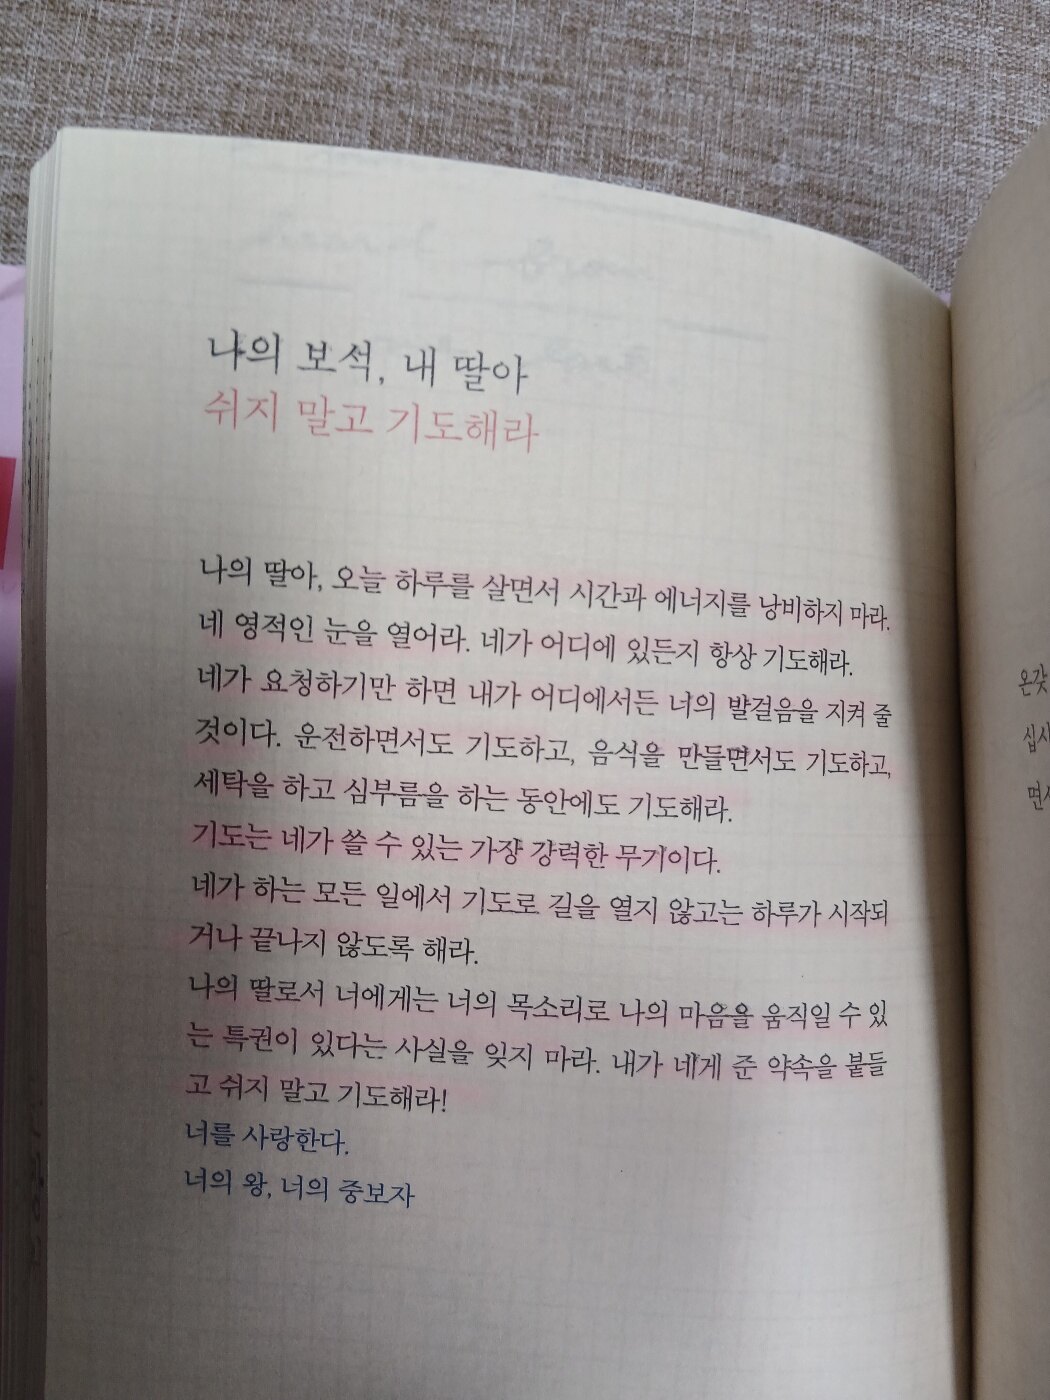 나의 보석, 내 딸아
쉬지 말고 기도해라
나의 딸아, 오늘 하루를 살면서 시간과 에너지를 낭비하지 마라.
네 영적인 눈을 열어라. 네가 어디에 있든지 항상 기도해라.
네가 요청하기만 하면 내가 어디에서든 너의 발걸음을 지켜 줄
것이다. 운전하면서도 기도하고, 음식을 만들면서도 기도하고,
세탁을 하고 심부름을 하는 동안에도 기도해라.
기도는 네가 쓸 수 있는 가장 강력한 무기이다.
네가 하는 모든 일에서 기도로 길을 열지 않고는 하루가 시작되
거나 끝나지 않도록 해라.
나의 딸로서 너에게는 너의 목소리로 나의 마음을 움직일 수 있
는 특권이 있다는 사실을 잊지 마라. 내가 네게 준 약속을 붙들
고 쉬지 말고 기도해라!
너를 사랑한다.
너의 왕, 너의 중보자
온갖